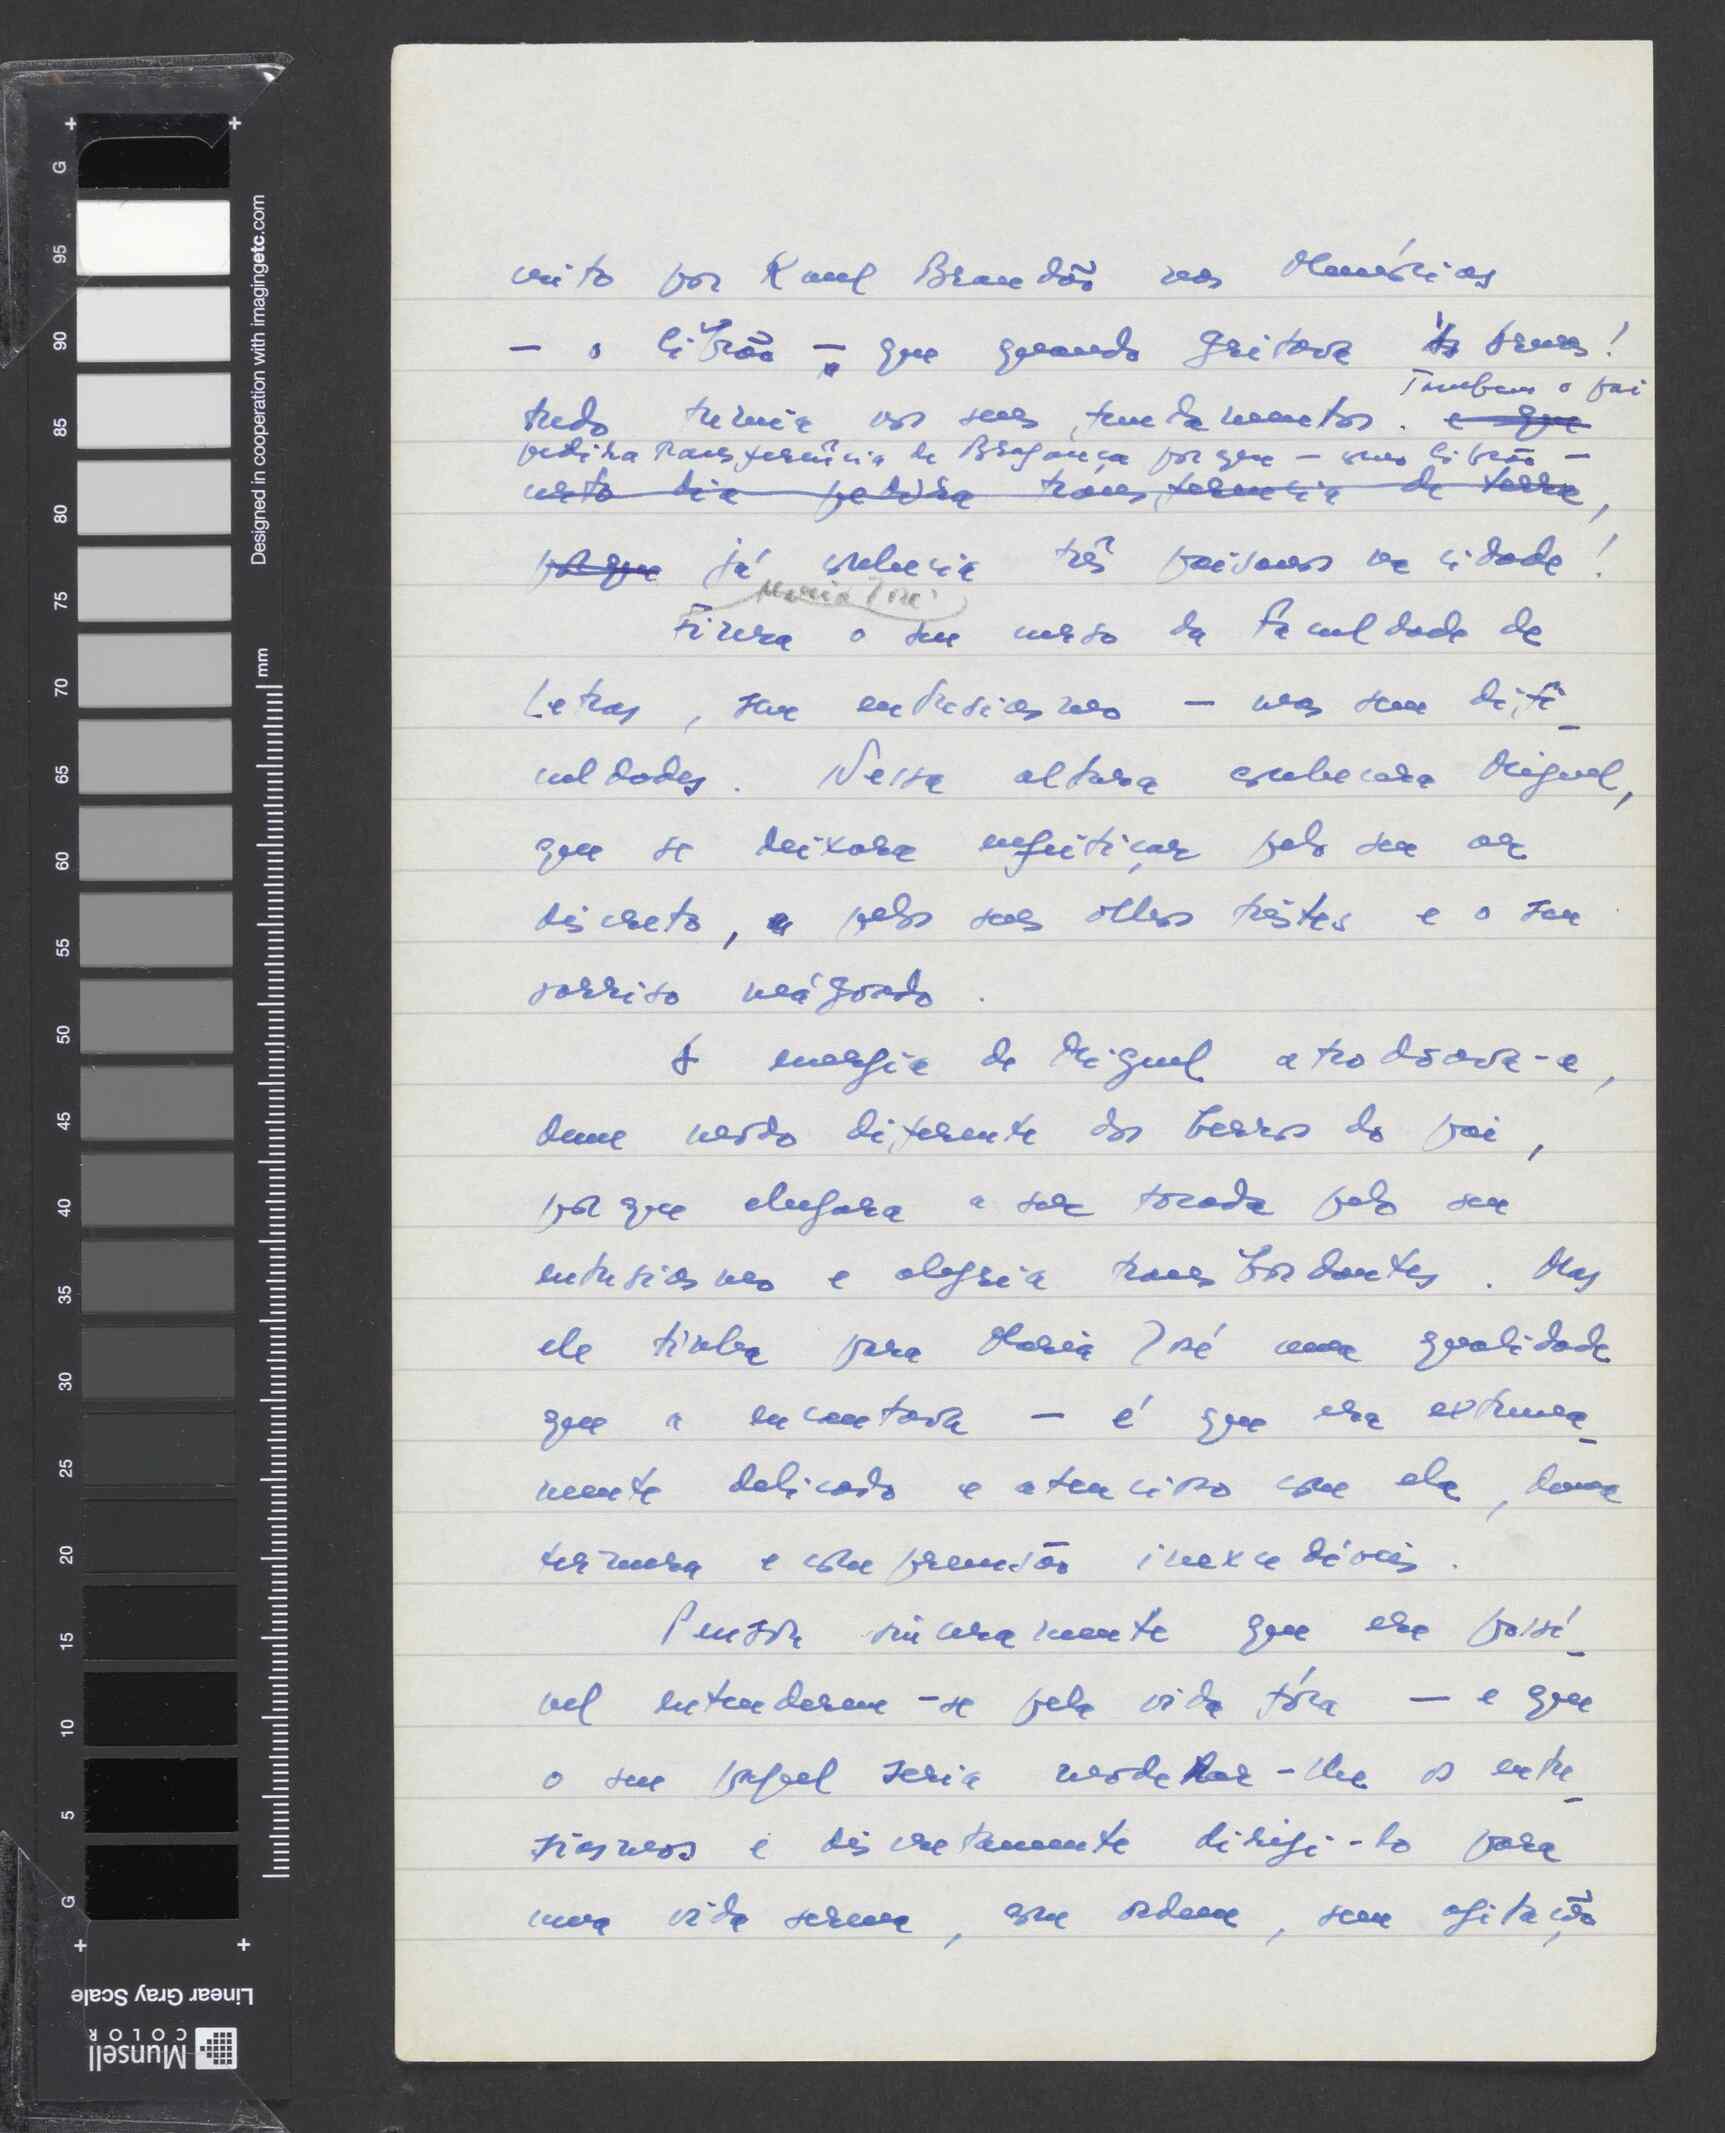 crito por Raul Brandão nas Memórias
— o Librão — que quando gritava às armas!
tudo tremia nos seus fundamentos. e que
Tambem o pai
pedira transferência de Bragança porque — como Librão —
certo dia pedira transferencia de terra,
porque já conhecia três paisanos na cidade!
Maria José
Tirara o seu curso da Faculdade de
Letras, sem entusiasmo — mas sem difi-
culdades. Nessa altura conhecera Miguel,
que se deixara enfeitiçar pelo seu ar
discreto, pelos seus olhos tristes e o seu
sorriso magoado.
A energia de Miguel atrodoava-a,
dum modo diferente dos berros do pai,
porque chegara a ser tocada pelo seu
entusiasmo e alegria transbordantes. Mas
ele tinha para Maria José uma qualidade
que a encantava — é que era extrema-
mente delicado e atencioso com ela, duma
ternura e compreensão inexcedíveis.
Pensou sinceramente que era possí-
vel entenderem-se pela vida fóra — e que
o seu papel seria moderar-lhe os entu-
siasmos e discretamente dirigi-lo para
uma vida serena, com ordem, sem agitação
G
95
90
85
80
75
70
65
60
55
50
45
40
35
30
25
20
15
10
5
G
mm
Designed in cooperation with imagingetc.com
Linear Gray Scale
Munsell
COLOR